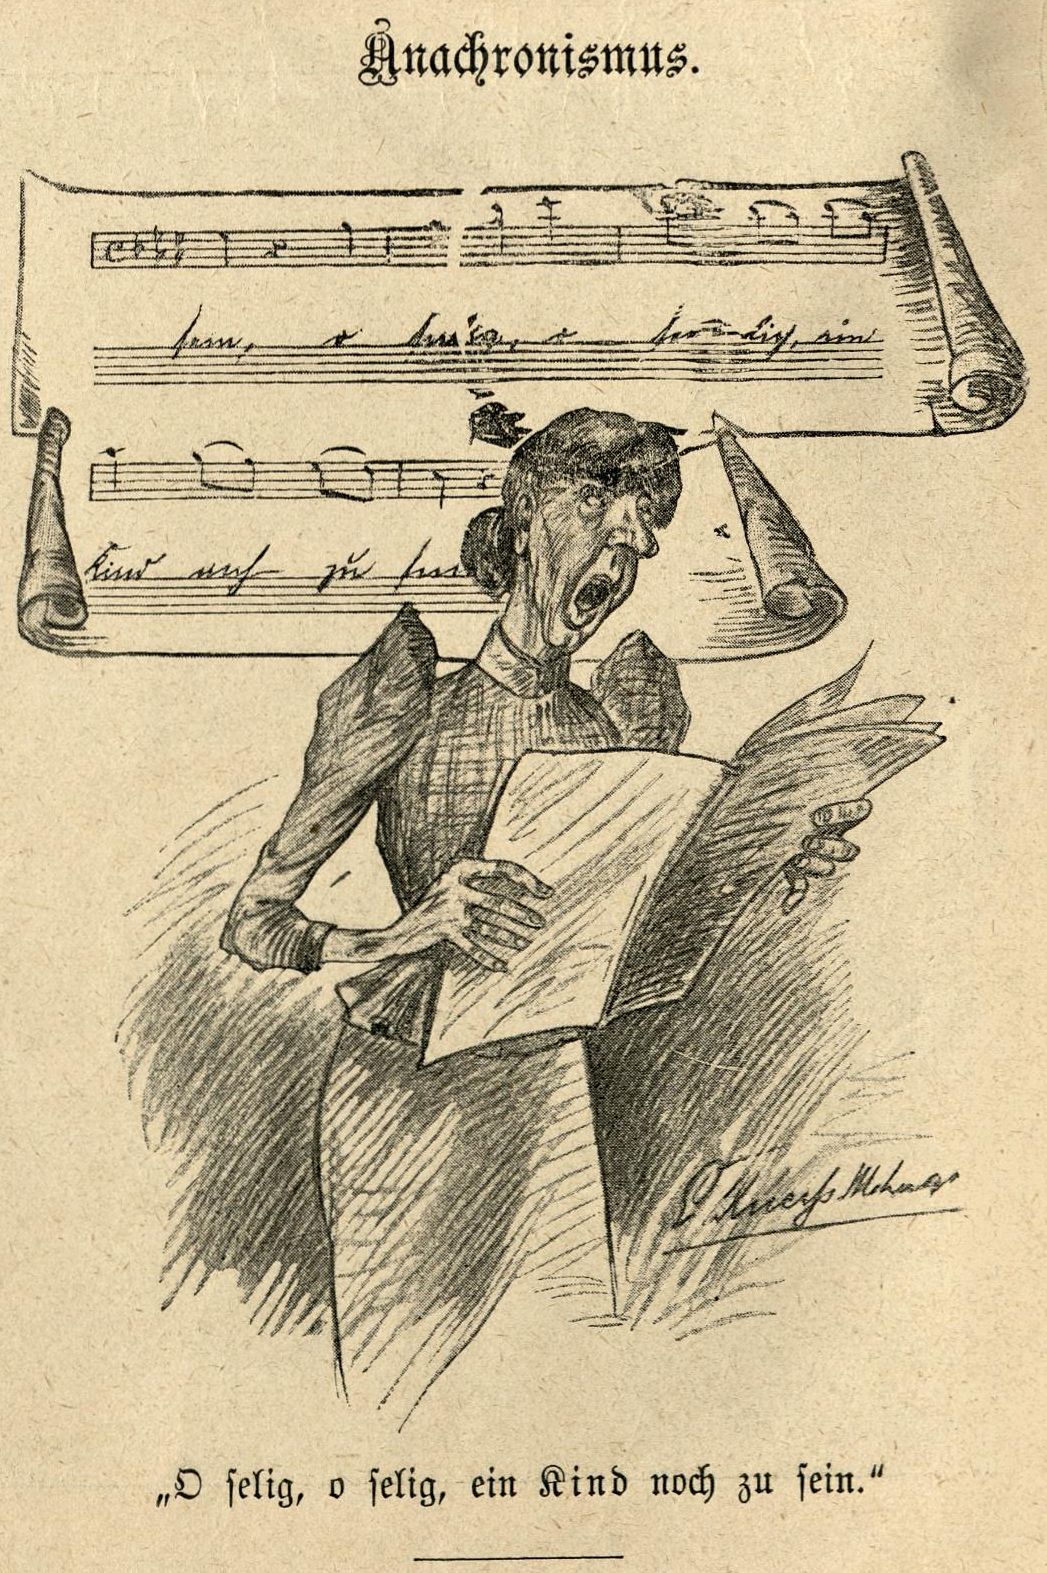 Anachronismus.
sein, o selig, o selig, ein
Kind noch zu sein
„O selig, o selig, ein Kind noch zu sein.“